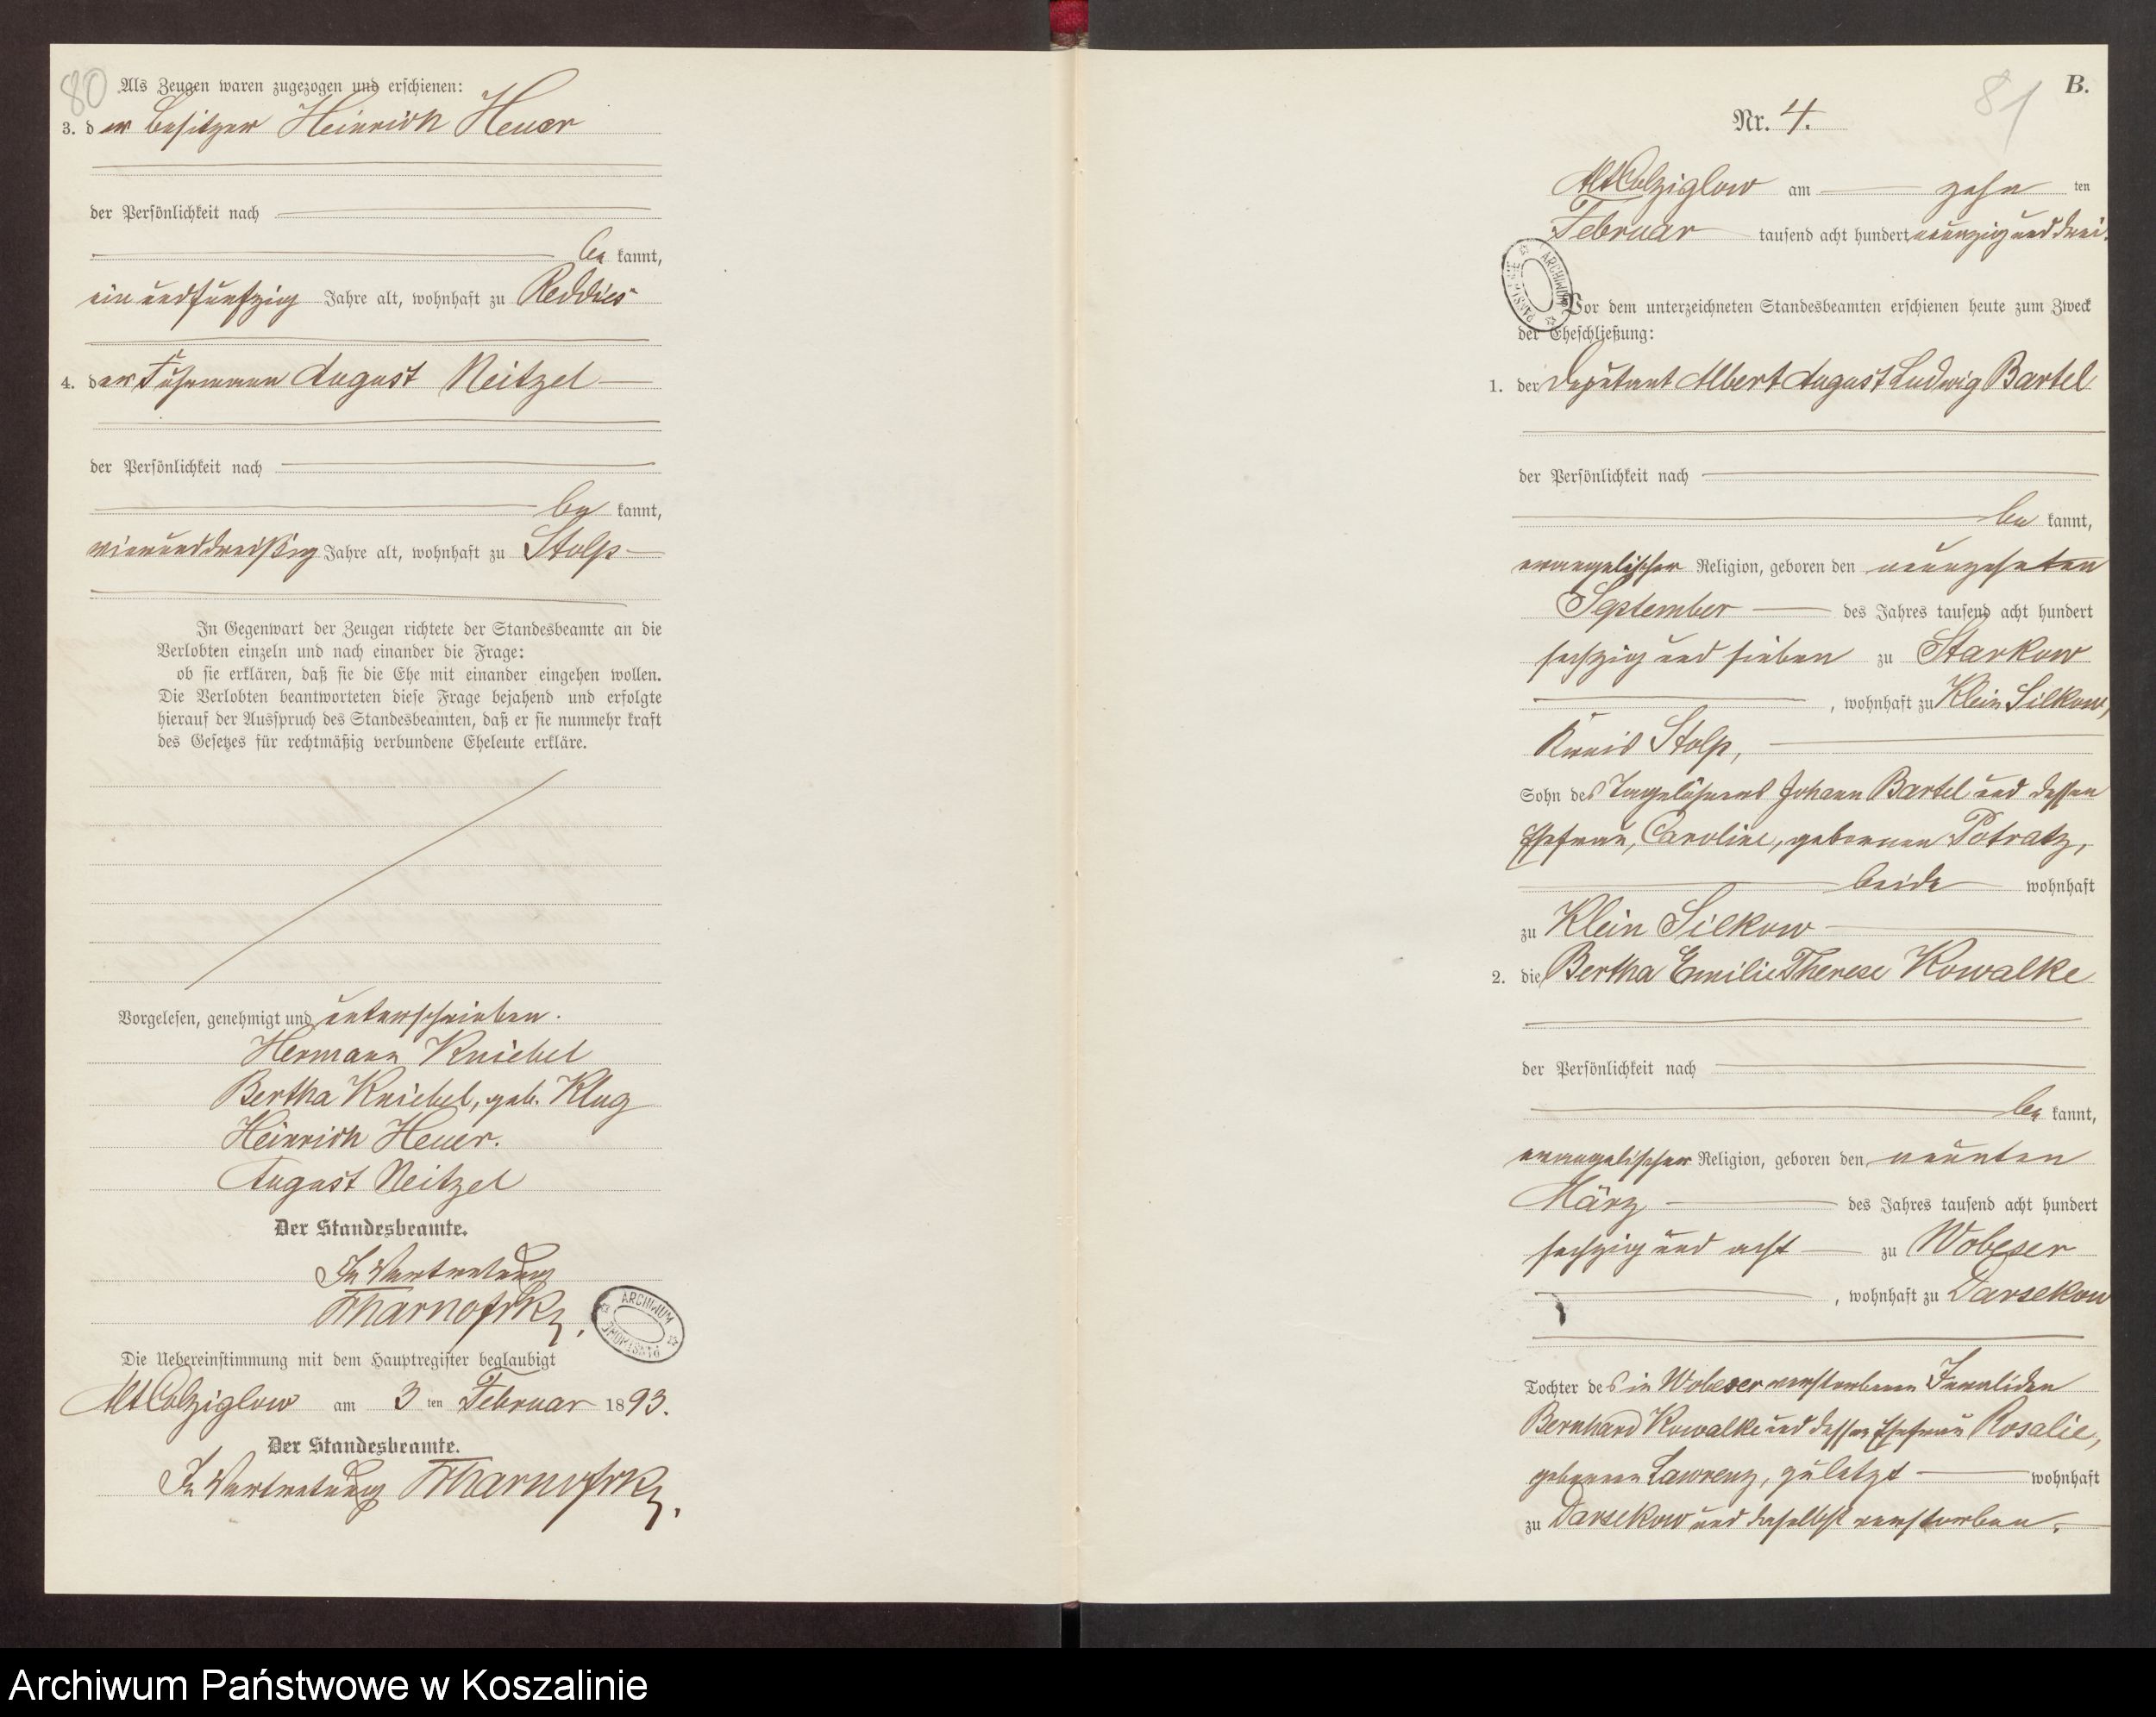 80
Als Zeugen waren zugezogen und erschienen:
3. der Besitzer Heinrich Heuer
der Persönlichkeit nach
be kannt,
ein und fünfzig Jahre alt, wohnhaft zu Reddies
4. der Fuhrmann August Neitzel
der Persönlichkeit nach
be kannt,
vierunddreißig Jahre alt, wohnhaft zu Stolp
In Gegenwart der Zeugen richtete der Standesbeamte an die
Verlobten einzeln und nach einander die Frage:
ob sie erklären, daß sie die Ehe mit einander eingehen wollen.
Die Verlobten beantworteten diese Frage bejahend und erfolgte
hierauf der Ausspruch des Standesbeamten, daß er sie nunmehr kraft
des Gesetzes für rechtmäßig verbundene Eheleute erkläre.
Vorgelesen, genehmigt und unterschrieben.
Hermann Kniebel
Bertha Kniebel, geb. Klug
Heinrich Heuer.
August Neitzel
Der Standesbeamte.
In Vertretung
ARCHIWUM PAŃSTWOWE
Die Uebereinstimmung mit dem Hauptregister beglaubigt
Alt Colziglow am 3 ten Februar 1893.
Der Standesbeamte.
In Vertretung
81
B.
Nr. 4.
Alt Colziglow am zehn ten
Februar tausend acht hundert neunzig und drei.
ARCHIWUM PAŃSTWOWE
Vor dem unterzeichneten Standesbeamten erschienen heute zum Zweck
der Eheschließung:
1. der Deputant Albert August Ludwig Bartel
der Persönlichkeit nach
be kannt,
evangelischer Religion, geboren den neunzehnten
September des Jahres tausend acht hundert
sechzig und sieben zu Starkow
, wohnhaft zu Klein Silkow,
Kreis Stolp,
Sohn des Tagelöhners Johann Bartel und dessen
Ehefrau, Caroline, geborenen Potratz,
beide wohnhaft
zu Klein Silkow
2. die Bertha Emilie Therese Kowalke
der Persönlichkeit nach
be kannt,
evangelischer Religion, geboren den neunten
März des Jahres tausend acht hundert
sechzig und acht zu Wobeser
, wohnhaft zu Darsekow
Tochter des in Wobeser verstorbenen Invaliden
Bernhard Kowalke und dessen Ehefrau Rosalie,
geborenen Lawrenz, zuletzt wohnhaft
zu Darsekow und daselbst verstorben.
Archiwum Państwowe w Koszalinie